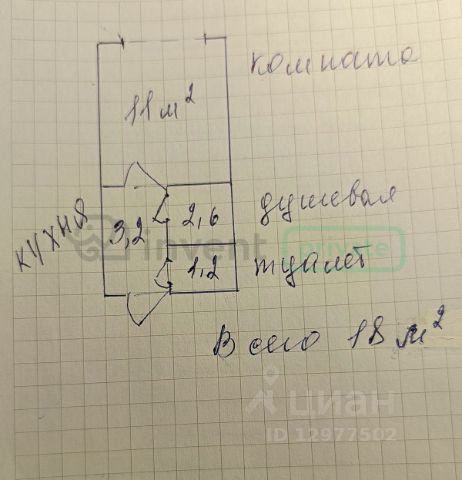 комната
11 м²
душевая
2,6
кухня
3,2
invent
private
туалет
1,2
Всего 18 м²
циан
ID 12977502